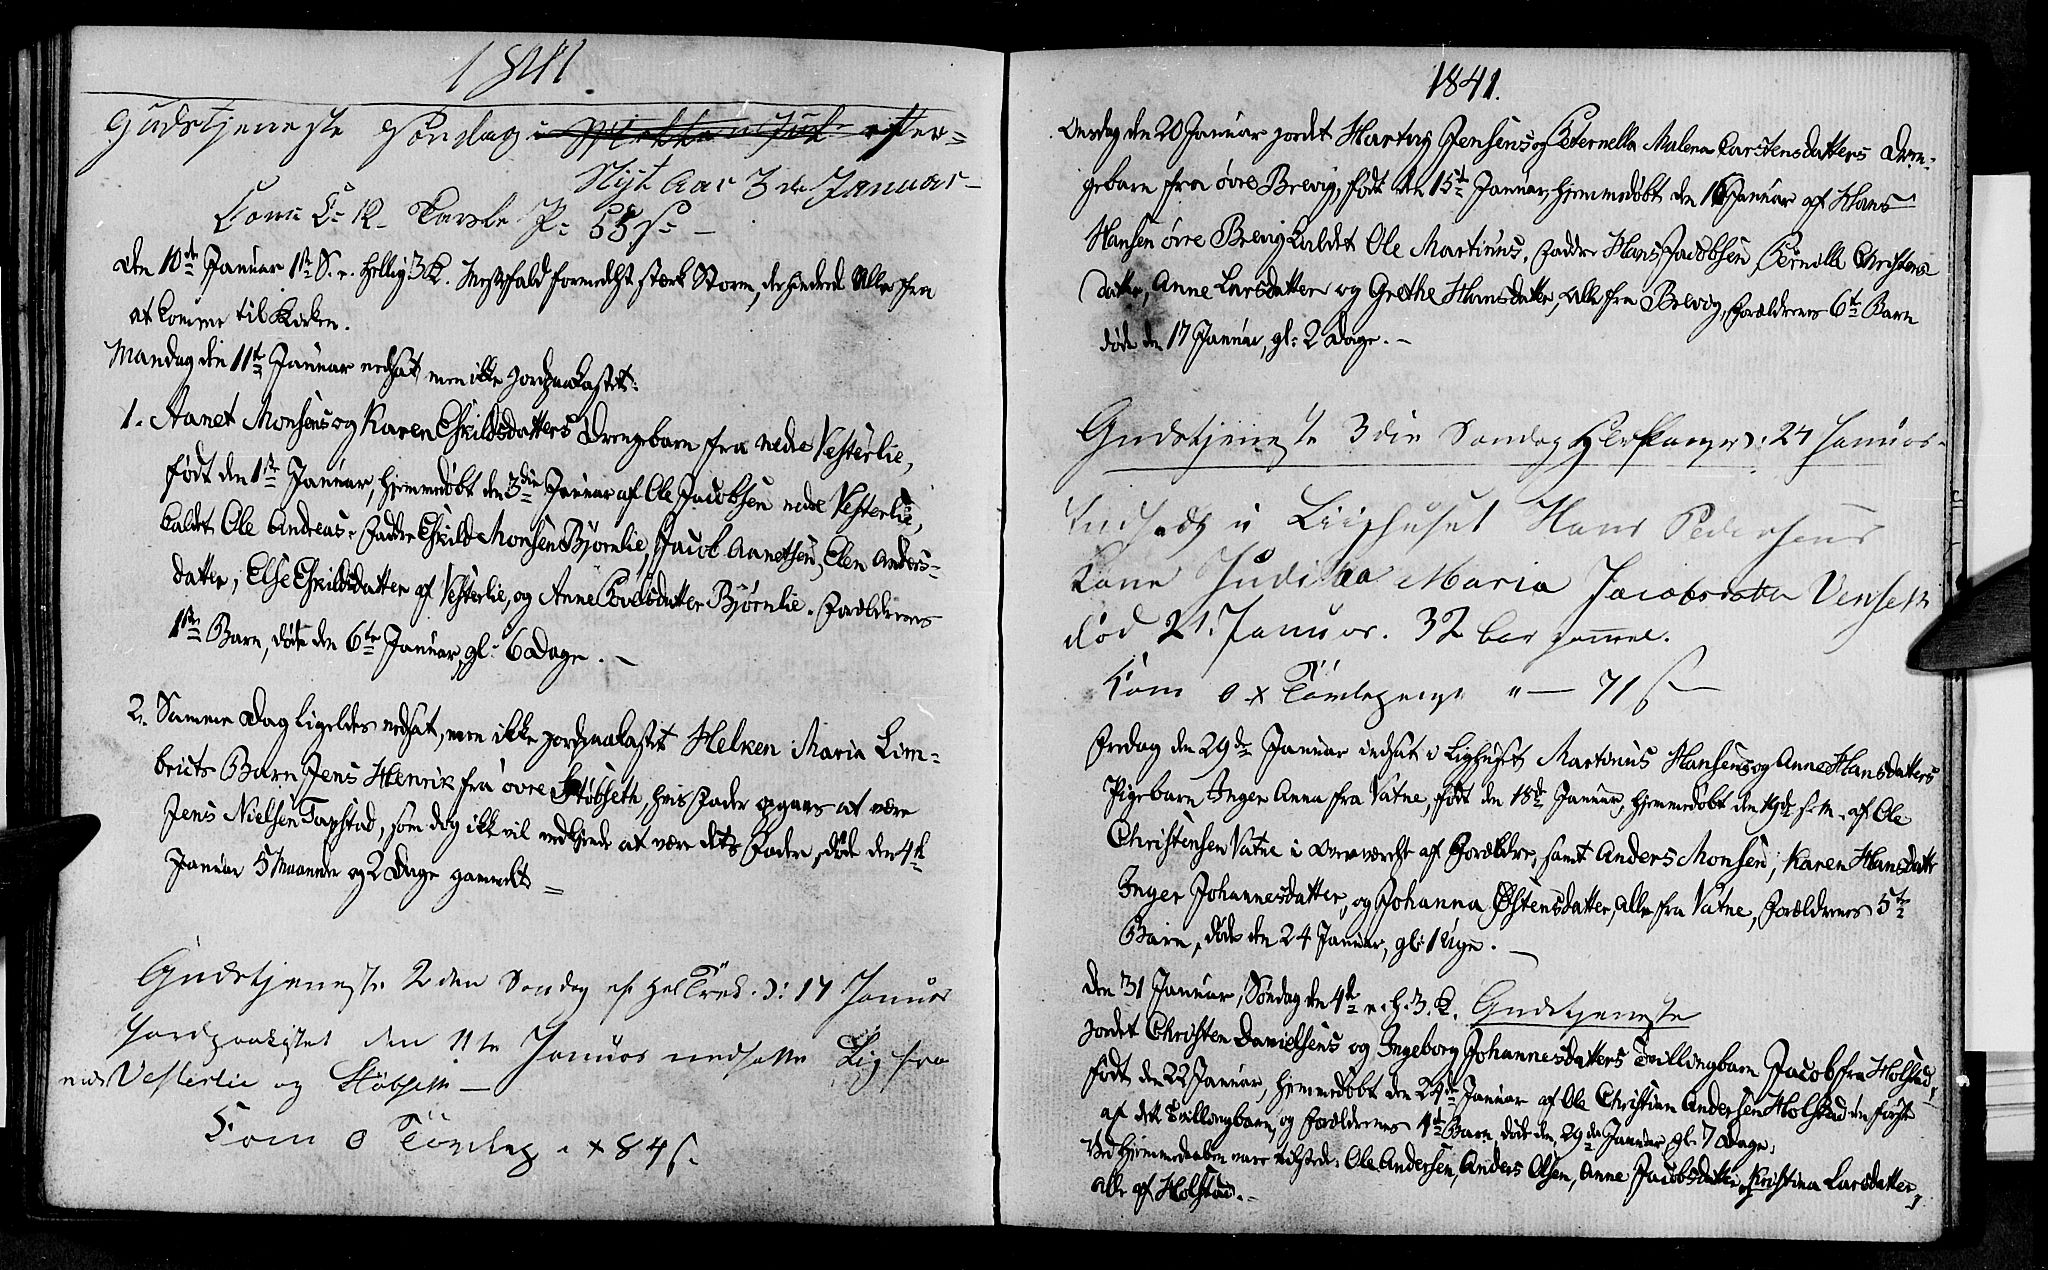 1841
Gudstjeneste Søndag efter
Nyt Aar 3die Januar
Com: C: 12. Tavle P: 53 s
Den 10de Januar 1ste S. e. Hellig 3 K. Messefald formedelst stærk Storm, der hindrede Alle fra
at komme til Kirken.
Mandag den 11te Januar nedsat, men ikke jordpaakastet:
1. Aanet Monsens og Karen Eskildsdatters Drengebarn fra nedre Vesterlie,
født den 1ste Januar, hjemmedøbt den 3die Januar af Ole Jacobsen nedre Vesterlie,
kaldet Ole Andreas. Faddre Eskild Monsen Bjørnlie, Jacob Aanetsen, Elen Anders-
datter, Else Eskildsdatter af Vesterlie, og Anne Povelsdatter Bjørnlie. Forældrenes
1ste Barn, døde den 6te Januar, gl: 6 Dage.
2. Samme Dag ligeledes nedsat, men ikke jordpaakastet Helken Maria Lim-
bricts Barn Jens Henrik fra øvre Støbseth, hvis Fader opgaves at være
Jens Nielsen Tapstad, som dog ikke vil vedkjende at være dets Fader, døde den 4de
Januar 5 Maaneder og 2 Dage gammelt
Gudstjeneste 2den Søndag ef. Hel Tred. D: 17 Januar
Jordpaakastet den 11te Januar nedsatte Lig fra
nedr Vesterlie og Støbseth
Com 0 Tavlep. 84 s.
1841.
Onsdag den 20 Januar jordet Hartvig Jensens og Peternella Malena Carstensdatters Dren-
gebarn fra øvre Brevig, født den 15de Januar, hjemmedøbt den 16 Januar af Hans
Hansen øvre Brevig kaldet Ole Martinus. Faddre Hans Jacobsen, Pernelle Christens
datter, Anne Larsdatter og Grethe Hansdatter, alle fra Brevig, Forældrenes 6te Barn
døde den 17 Januar, gl: 2 Dage.
Gudstjeneste 3die Søndag D: 24 Januar
Indsadt i Liighuset Hans Pedersens
Kone Judithe Maria Jacobsdatter Venseth
død 21. Januar. 32 aar gammel.
Com 0 x Tavlepenge 71 s
Fredag den 29de Januar indsat i Lighuset Martinus Hansens og Anne Hansdatters
Pigebarn Inger Anna fra Vatne, født den 18de Januar, hjemmedøbt den 19de s. M. af Ole
Christensen Vatne i Overværelse af Forældre, samt Anders Monsen, Karen Hansdatt
Inger Johannesdatter, og Johanna Østensdatter, alle fra Vatne, Forældrenes 5te
Barn, døde den 24 Januar, gl: 1 Uge.
Den 31 Januar, Søndag den 4de e. h. 3. K. Gudstjeneste
jordet Christen Danielsens og Ingeborg Johannesdatters Tvillingbarn Jacob fra Holstad,
født den 22 Januar, hjemmedøbt den 24de Januar af Ole Christian Andersen Holstad den første
af dette Tvillingbarn, og Forældrenes 1ste Barn, døde den 29de Januar, gl: 7 Dage.
Ved Hjemmedaaben vare tilstede: Ole Andersen, Anders Olsen, Anne Jacobsdatter og Kristina Larsdatter,
alle af Holstad.